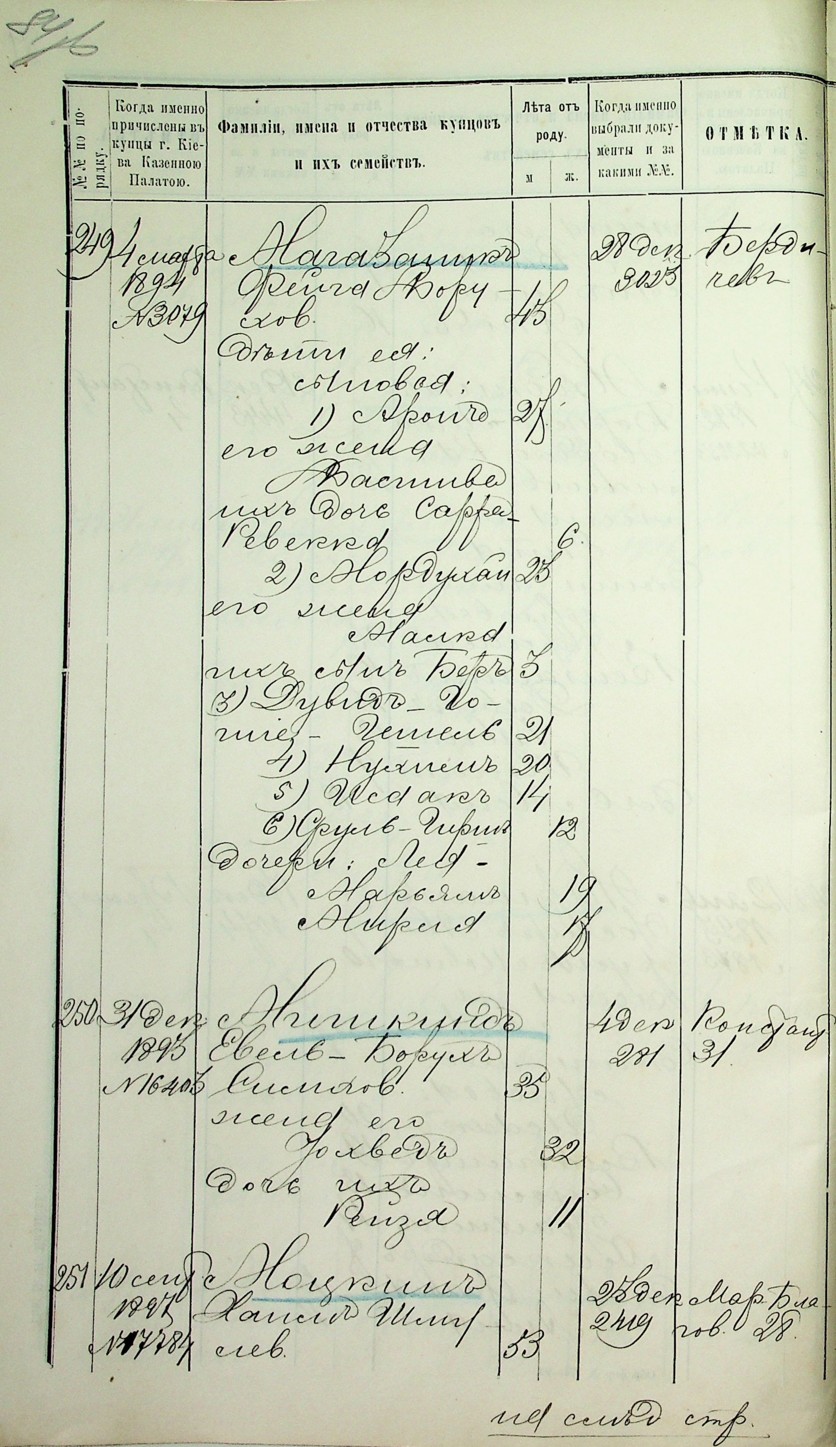 №№ по порядку.
Когда именно причислены въ купцы г. Кіева Казенною Палатою.
Фамиліи, имена и отчества купцовъ и ихъ семействъ.
Лѣта отъ роду.
м ж.
Когда именно выбрали документы и за какими №№.
ОТМѢТКА.
249 4 марта Магазаникъ 28 дек Берди-
1894 Фейга Бору- 3023 чевъ
№3079 хов. 43
Дѣти ея:
сыновья:
1) Аронъ 27
его жена
Бастива
ихъ дочь Сарра-
Ревекка 6.
2) Мордухай 23
его жена
Малка
ихъ сынъ Беръ 3
3) Дувидъ-Іо-
Гешель 21
4) Нухимъ 20
5) Исаакъ 14
6) Сруль-Гершъ 12
Дочери: Лея-
Марьямъ 19
Мирля 17
250 31 дек 4 дек Констант
1893 Евель-Борухъ 281 31
№16403 Симхов. 35
жена его
Іохведъ 32
дочь ихъ
Рейзя 11
251 10 сент Моцкинъ 23 дек Мар. Бла-
1897 Хаимъ Шму- 2419 гов. 28.
№17784 лев. 53
на слѣд стр.